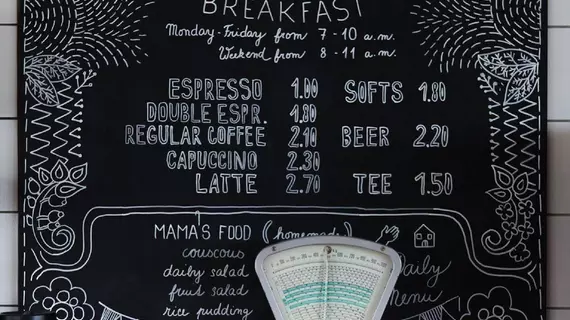 BREAKFAST
Monday-Friday from 7-10 a.m.
Weekend from 8-11 a.m.
ESPRESSO 1.00 SOFTS 1.80
DOUBLE ESPR. 1.80
REGULAR COFFEE 2.10 BEER 2.20
CAPUCCINO 2.30
LATTE 2.70 TEE 1.50
MAMA'S FOOD (homemade)
couscous
daily salad Daily
fruit salad Menu
rice pudding